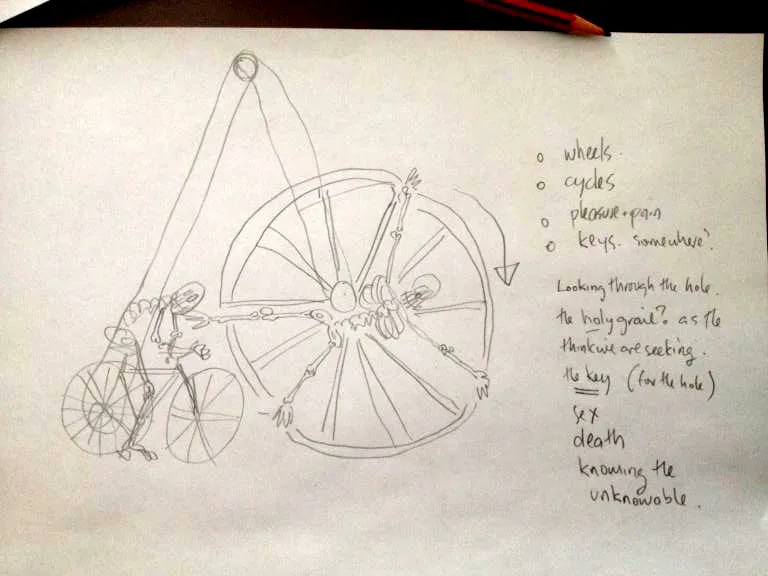 wheels.
cycles
pleasure + pain
keys. somewhere?
Looking through the hole.
the holy grail? as the
think we are seeking.
the key (for the hole)
sex
death
knowing the
unknowable.